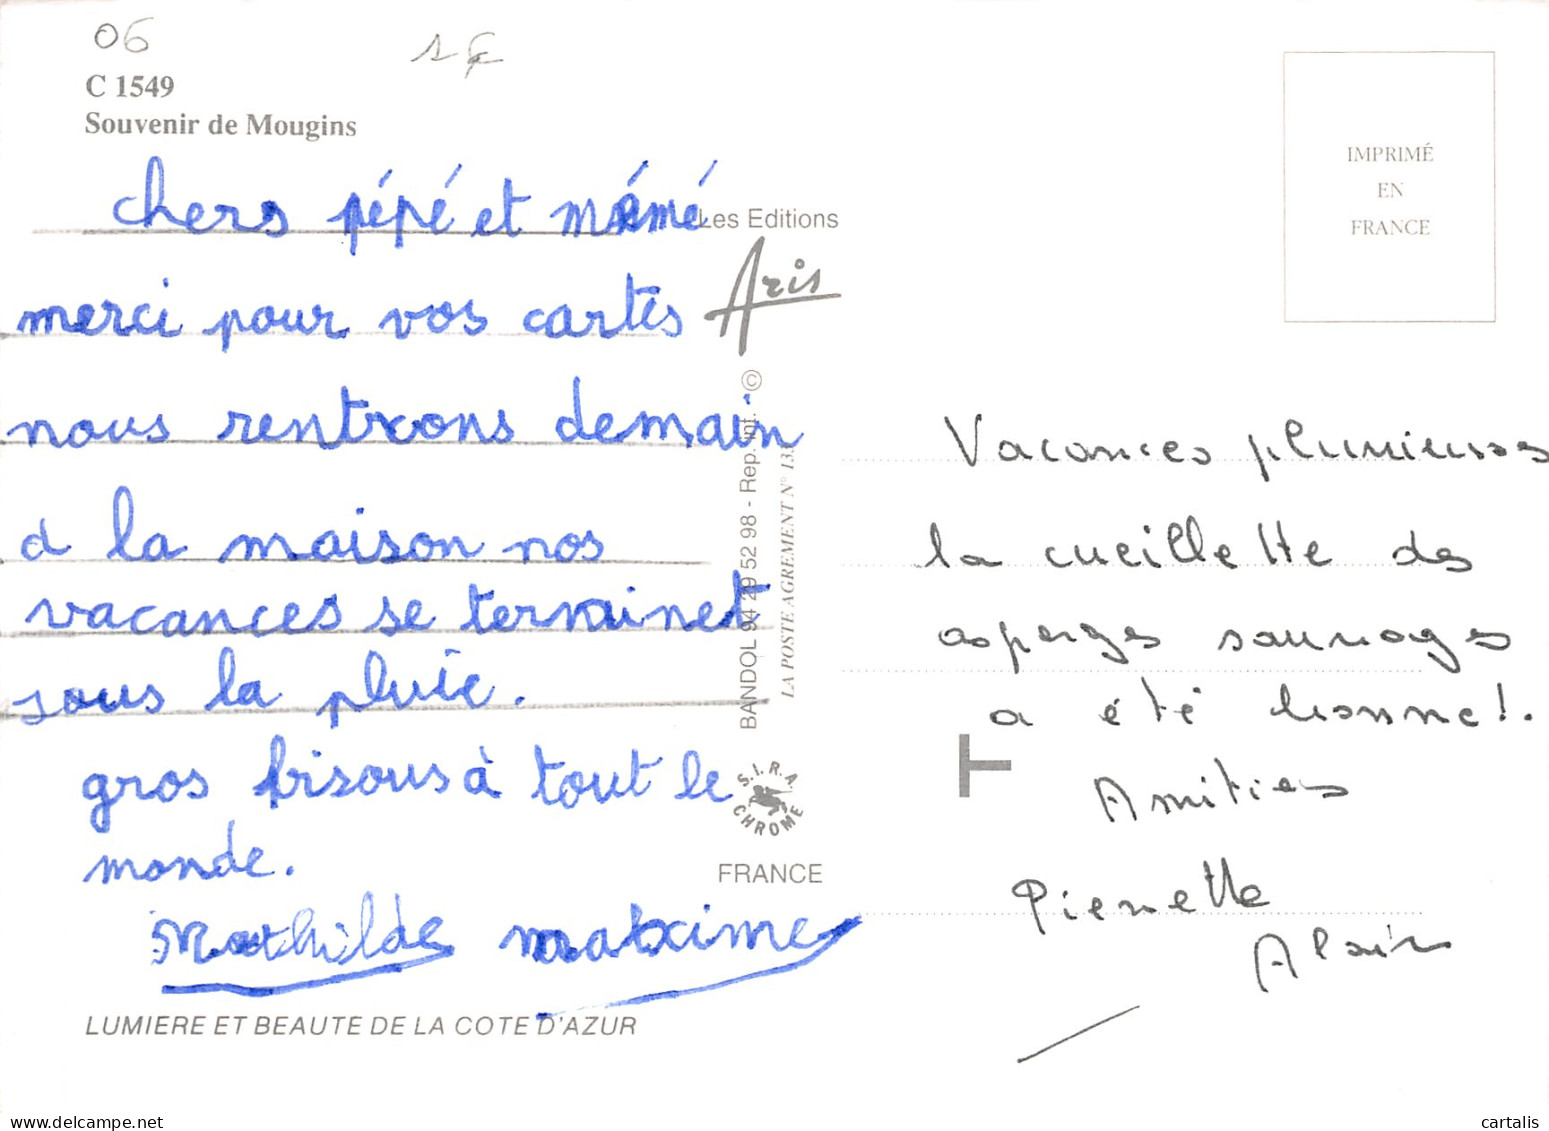 06
1 €
C 1549
Souvenir de Mougins
chers pépé et mémé
merci pour vos cartes
nous rentrons demain
a la maison nos
vacances se terminet
sous la pluie.
gros bisous à tout le
monde.
Mathilde maxime
LUMIERE ET BEAUTE DE LA COTE D'AZUR
Les Editions
Aris
BANDOL 94 29 52 98 - Rep. int. ©
LA POSTE AGREMENT N° 13
S.I.R.A.
CHROME
FRANCE
IMPRIMÉ
EN
FRANCE
Vacances pluvieuses
la cueillette des
asperges sauvages
a été bonne!.
T
Amitiés
Pierrette
Alain
cartalis